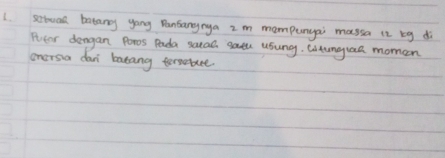 1. Sebuah batang yang Panjangnya 2 m mempunyai massa 12 kg di
Putar dengan Poros Pada salah satu ujung. Hitunglah momen
enersia dari batang tersebut